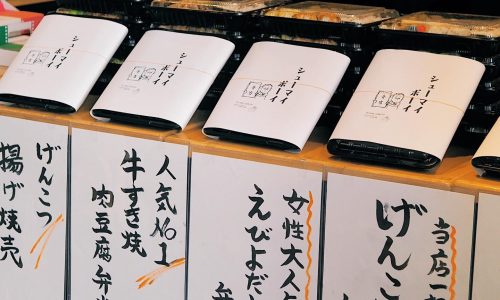 シューマイ
ボーイ
シューマイ
ボーイ
シューマイ
ボーイ
シューマイ
ボーイ
げんこつ
揚げ焼売
人気No1
牛すき焼
肉豆腐弁当
女性大人
えびよだ
弁
当店一
げんこ